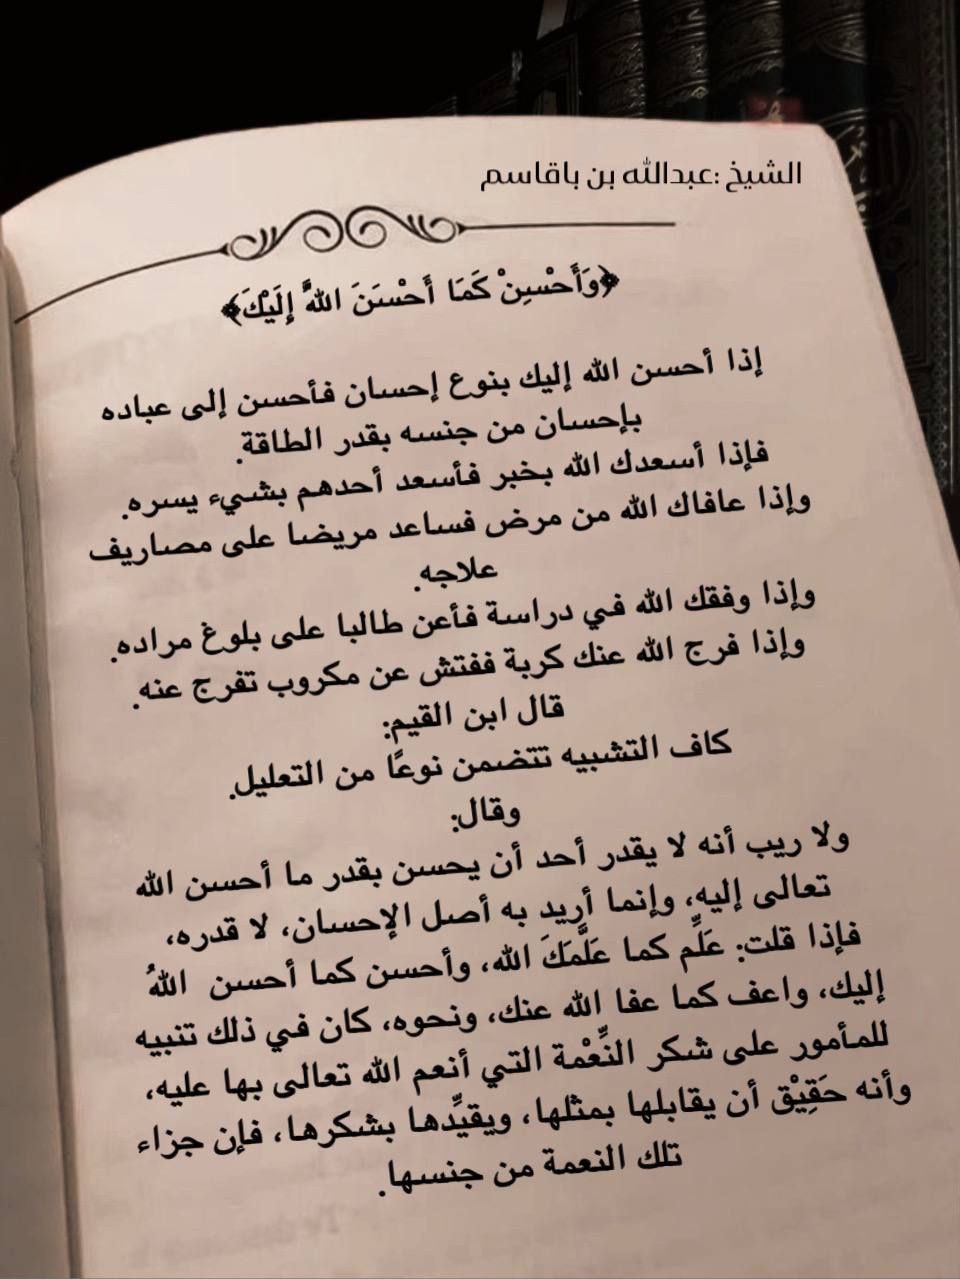 الشيخ :عبدالله بن باقاسم
﴿وَأَحْسِنْ كَمَا أَحْسَنَ اللَّهُ إِلَيْكَ﴾
إذا أحسن الله إليك بنوع إحسان فأحسن إلى عباده
بإحسان من جنسه بقدر الطاقة.
فإذا أسعدك الله بخبر فأسعد أحدهم بشيء يسره.
وإذا عافاك الله من مرض فساعد مريضا على مصاريف
علاجه.
وإذا وفقك الله في دراسة فأعن طالبا على بلوغ مراده.
وإذا فرج الله عنك كربة ففتش عن مكروب تفرج عنه.
قال ابن القيم:
كاف التشبيه تتضمن نوعًا من التعليل.
وقال:
ولا ريب أنه لا يقدر أحد أن يحسن بقدر ما أحسن الله
تعالى إليه، وإنما أريد به أصل الإحسان، لا قدره،
فإذا قلت: عَلِّم كما عَلَّمَكَ الله، وأحسن كما أحسن اللهُ
إليك، واعف كما عفا الله عنك، ونحوه، كان في ذلك تنبيه
للمأمور على شكر النِّعْمة التي أنعم الله تعالى بها عليه،
وأنه حَقِيْق أن يقابلها بمثلها، ويقيِّدها بشكرها، فإن جزاء
تلك النعمة من جنسها.